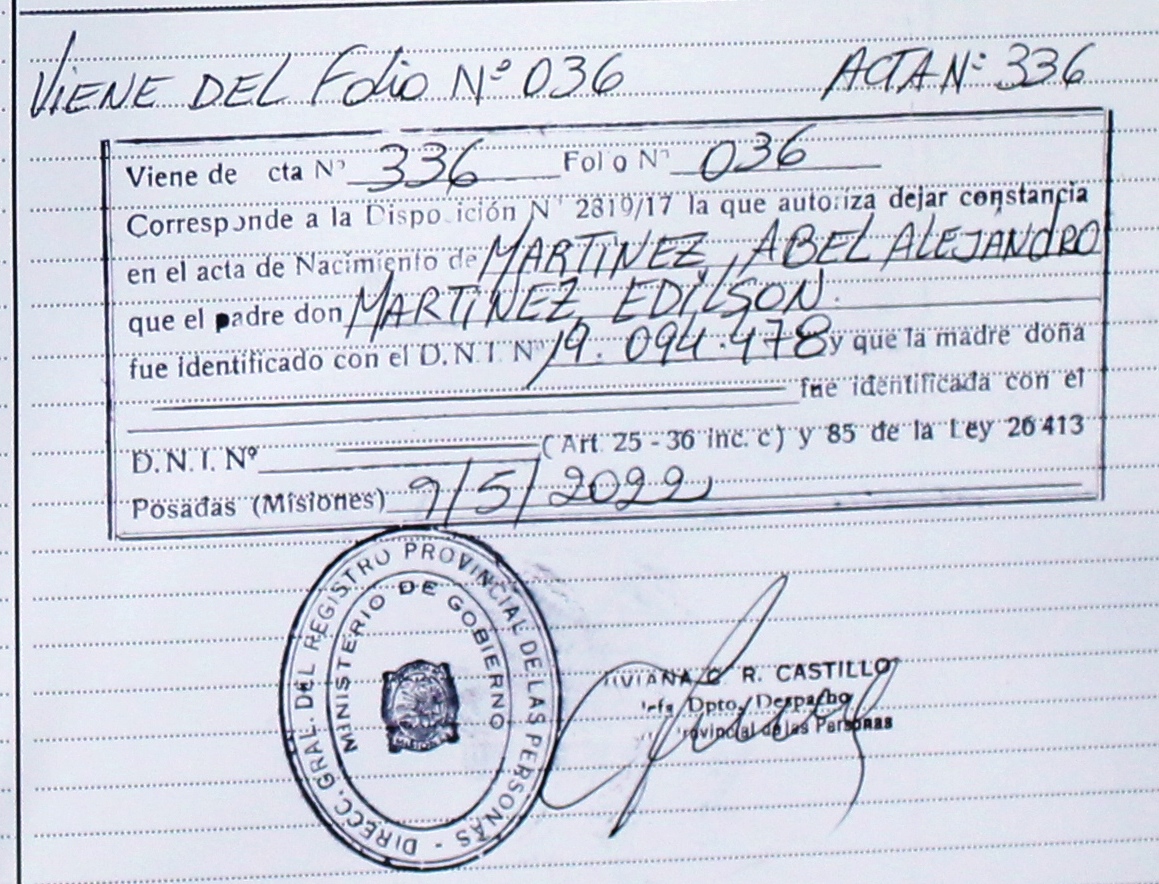 VIENE DEL Folio Nº 036 ACTA Nº 336
Viene de cta Nº 336 Fol o Nº 036
Corresponde a la Dispo ición Nº 2819/17 la que autoriza dejar constancia
en el acta de Nacimiento de MARTINEZ, ABEL ALEJANDRO
que el padre don MARTINEZ, EDILSON.
fue identificado con el D.N.I. Nº 19.094.478 y que la madre doña
fue identificada con el
D.N.I. Nº ( Art. 25 - 36 inc. c) y 85 de la Ley 26413
Posadas (Misiones) 9/5/2022
DIRECC. GRAL. DEL REGISTRO PROVINCIAL DE LAS PERSONAS -
MINISTERIO DE GOBIERNO
R. CASTILLO
Dpto. Despacho
rovincial de las Personas